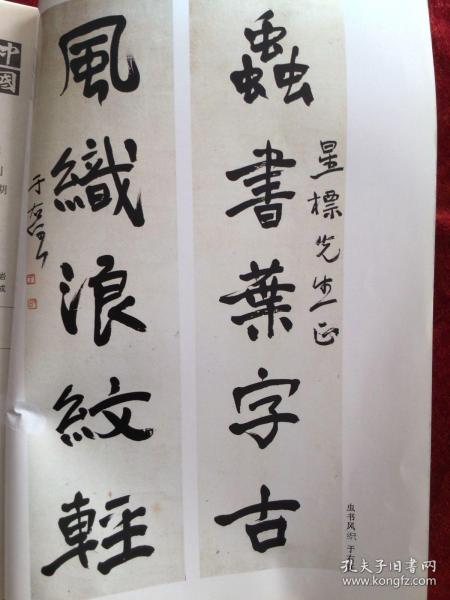 蟲書葉字古
星標先生正
風織浪紋輕
于右任
虫书风织 于右
中國
孔夫子旧书网